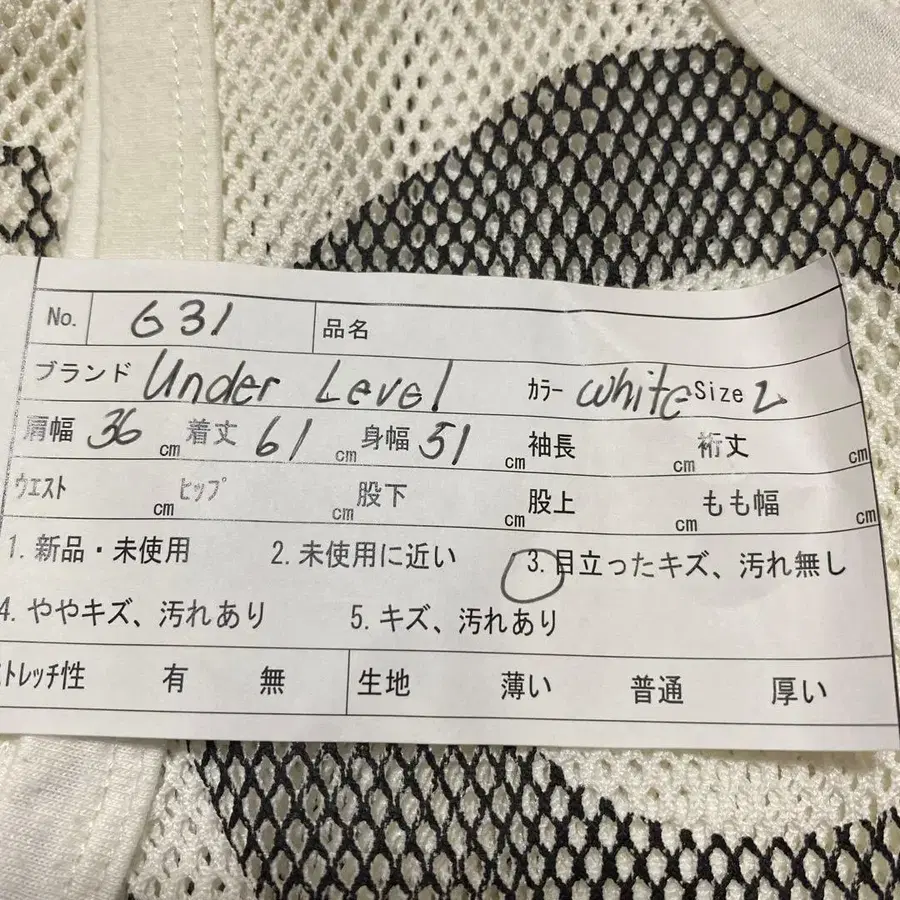 No. 631 品名
ブランド Under Level カラー White Size 2
肩幅 36 cm 着丈 61 cm 身幅 51 cm 袖長 cm 裄丈 cm
ウエスト cm ヒップ cm 股下 cm 股上 cm もも幅 cm
1. 新品・未使用 2. 未使用に近い 3. 目立ったキズ、汚れ無し
4. ややキズ、汚れあり 5. キズ、汚れあり
ストレッチ性 有 無 生地 薄い 普通 厚い